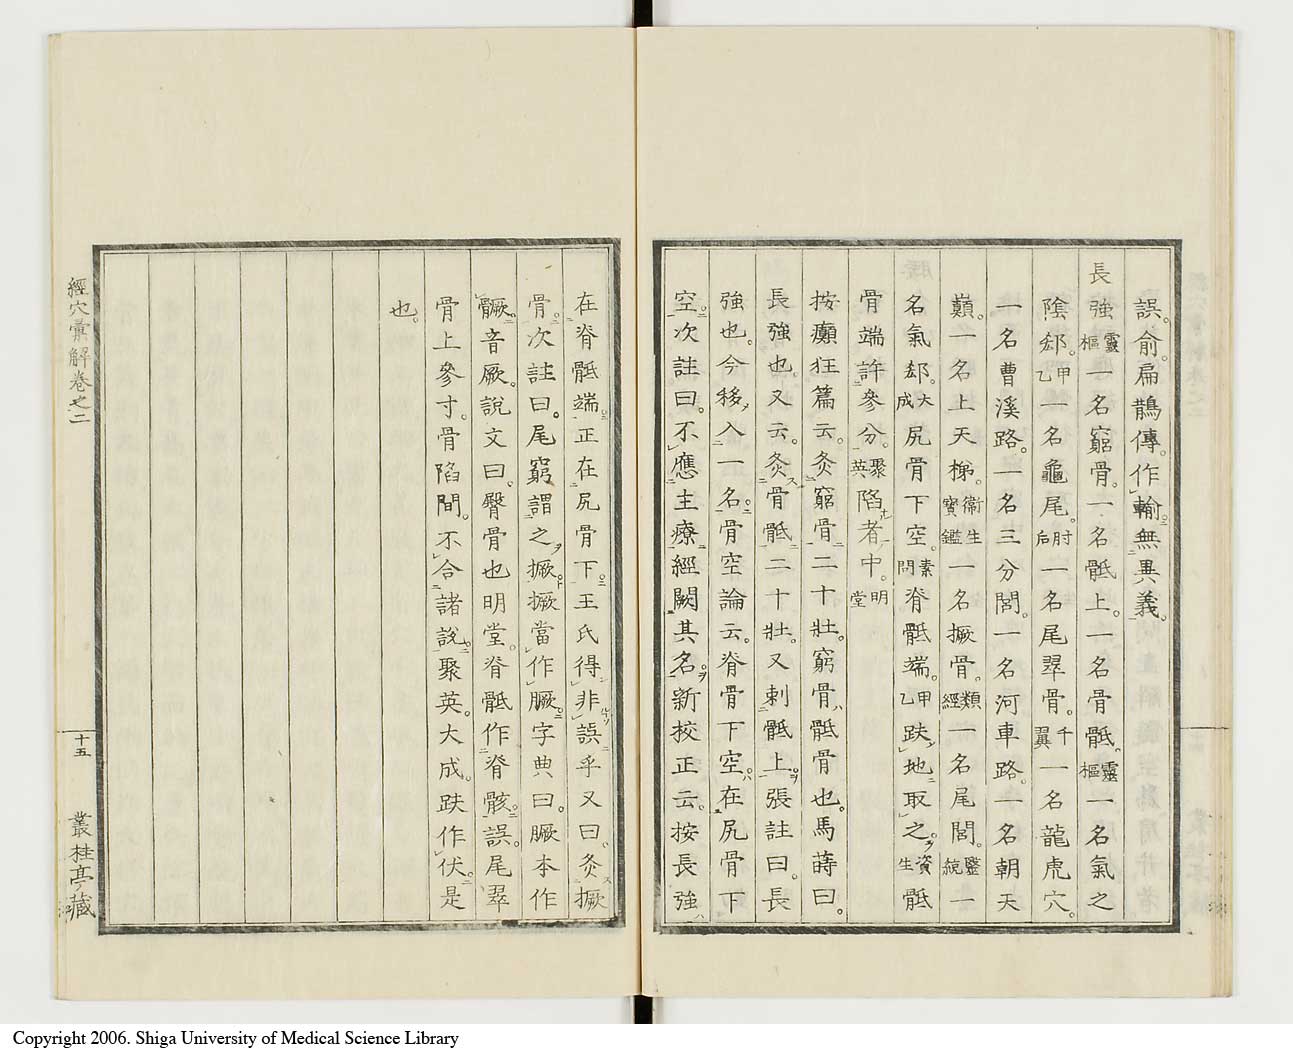 誤。俞。扁鵲傳。作輸。無異義。
長強靈樞一名窮骨。一名骶上。一名骨骶。靈樞一名氣之
陰郄。甲乙一名龜尾。肘后一名尾翠骨。千翼一名龍虎穴。
一名曹溪路。一名三分閭。一名河車路。一名朝天
巔。一名上天梯。衞生寶鑑一名撅骨。類經一名尾閭。鑒統一
名氣郄。大成尻骨下空。素問脊骶端。甲乙趺地取之。資生骶
骨端許參分。聚英陷者中。明堂
按癲狂篇云。灸窮骨二十壯。窮骨骶骨也。馬蒔曰。
長強也。又云。灸骨骶二十壯。又刺骶上。張註曰。長
強也。今移入一名。骨空論云。脊骨下空。在尻骨下
空。次註曰。不應主療。經闕其名。新校正云。按長強
在脊骶端。正在尻骨下。王氏得非誤乎又曰。灸撅
骨。次註曰。尾窮謂之撅。撅當作𩩲。字典曰。𩩲本作
𩪗。音厥。說文曰。臀骨也明堂。脊骶作脊骸。誤。尾翠
骨上參寸。骨陷間。不合諸說。聚英。大成。趺作伏。是
也。
經穴彙解卷之二
十五
叢桂亭藏
Copyright 2006. Shiga University of Medical Science Library